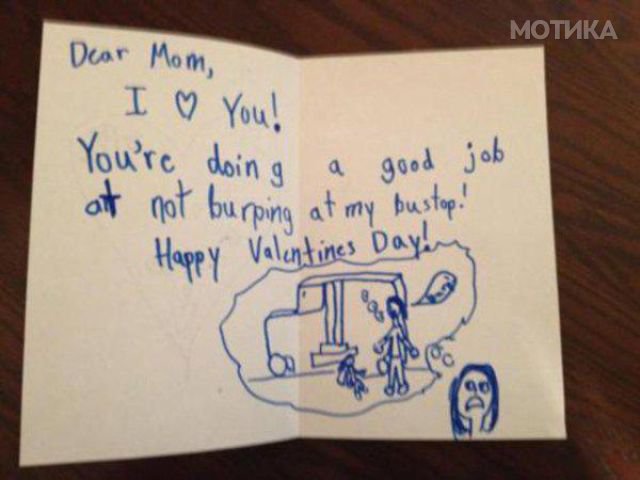 МОТИКА
Dear Mom,
I ♡ You!
You're doing a good job
at not burping at my bustop!
Happy Valentines Day!